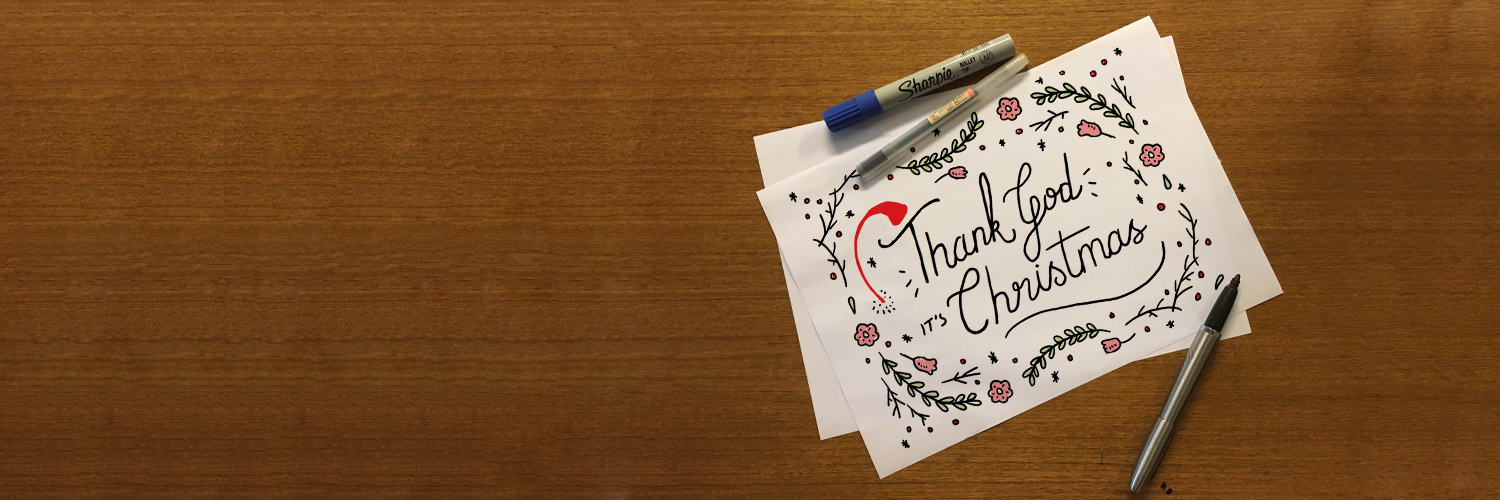 Sharpie
BULLET
TIP
(AP)
Thank God
IT'S
Christmas